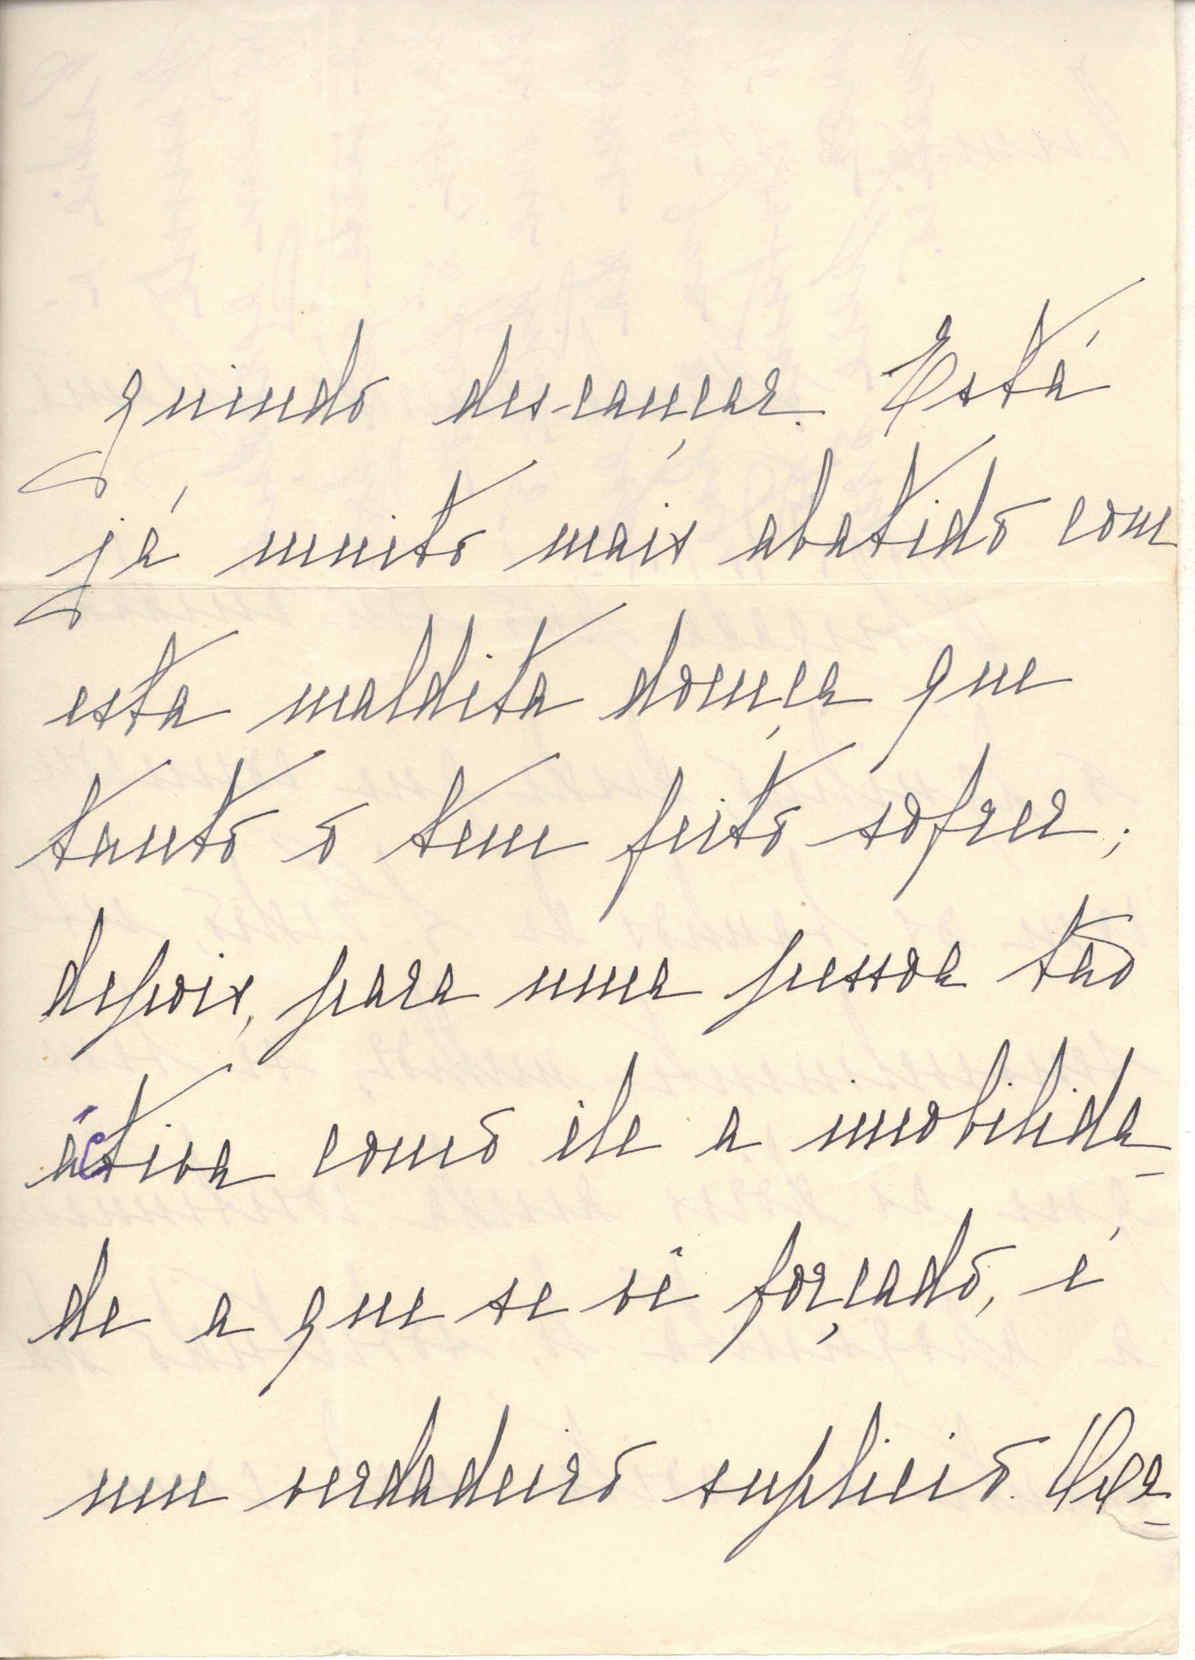 guindo descançar. Está
já muito mais abatido com
esta maldita doença que
tanto o tem feito sofrer;
depois, para uma pessoa tão
áctiva como êle a imobilida-
de a que se vê forçado, é
um verdadeiro suplicio.